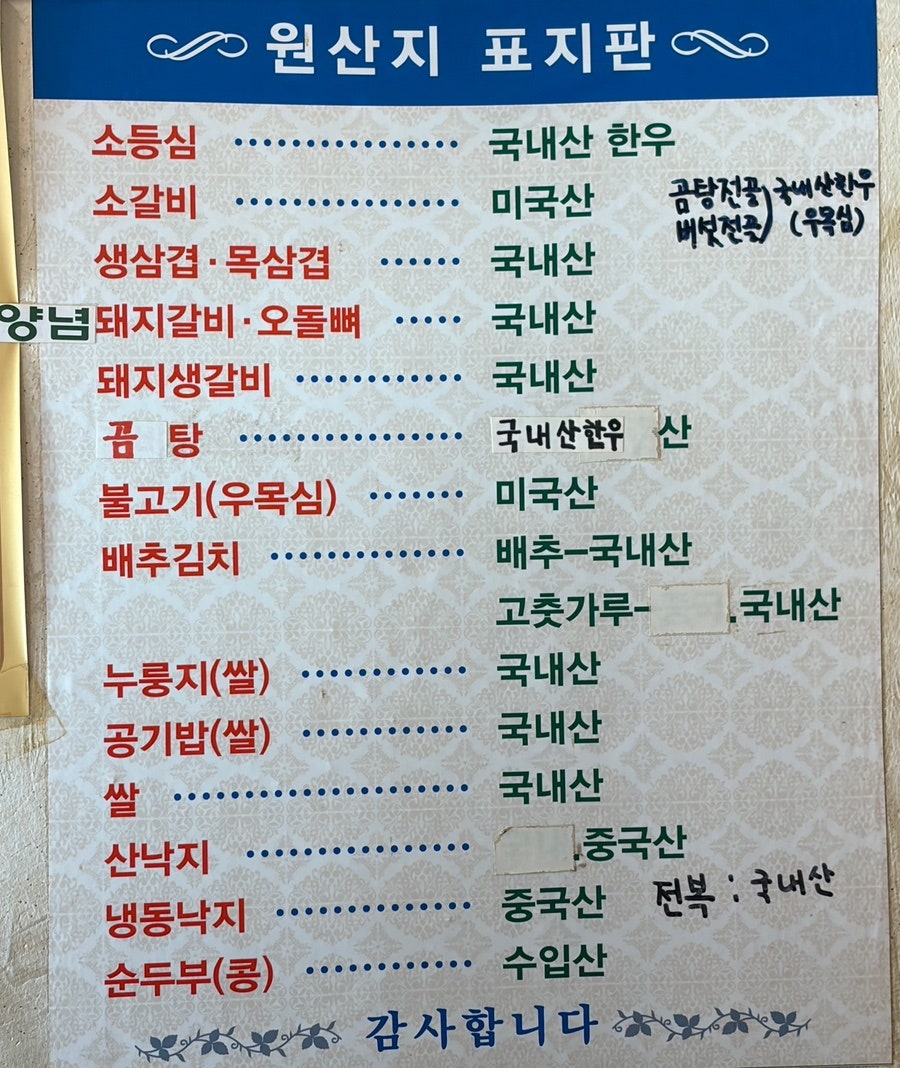 원산지 표지판
소등심 ················ 국내산 한우
소갈비 ················ 미국산
곰탕전골 버섯전골) 국내산한우 (우목심)
생삼겹·목삼겹 ······ 국내산
양념돼지갈비·오돌뼈 ····· 국내산
돼지생갈비 ············ 국내산
곰탕 ················ 국내산한우산
불고기(우목심) ······· 미국산
배추김치 ·············· 배추-국내산
고춧가루- .국내산
누룽지(쌀) ············ 국내산
공기밥(쌀) ············ 국내산
쌀 ····················· 국내산
산낙지 ················ .중국산
냉동낙지 ·············· 중국산
전복 : 국내산
순두부(콩) ············ 수입산
감사합니다